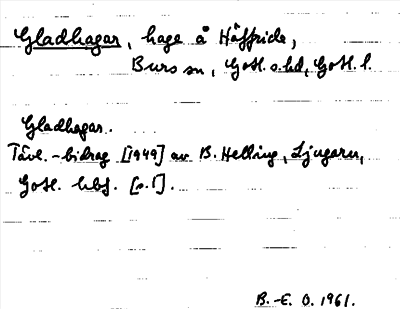 Gladhagar, hage å Häffride,
Burs sn, Gotl. s. hd, Gotl. l.
Gladhagar.
Tävl.-bidrag [1949] av B. Helling, Ljugarn,
Gotl. hbf. [s.1].
B.-E. O. 1961.